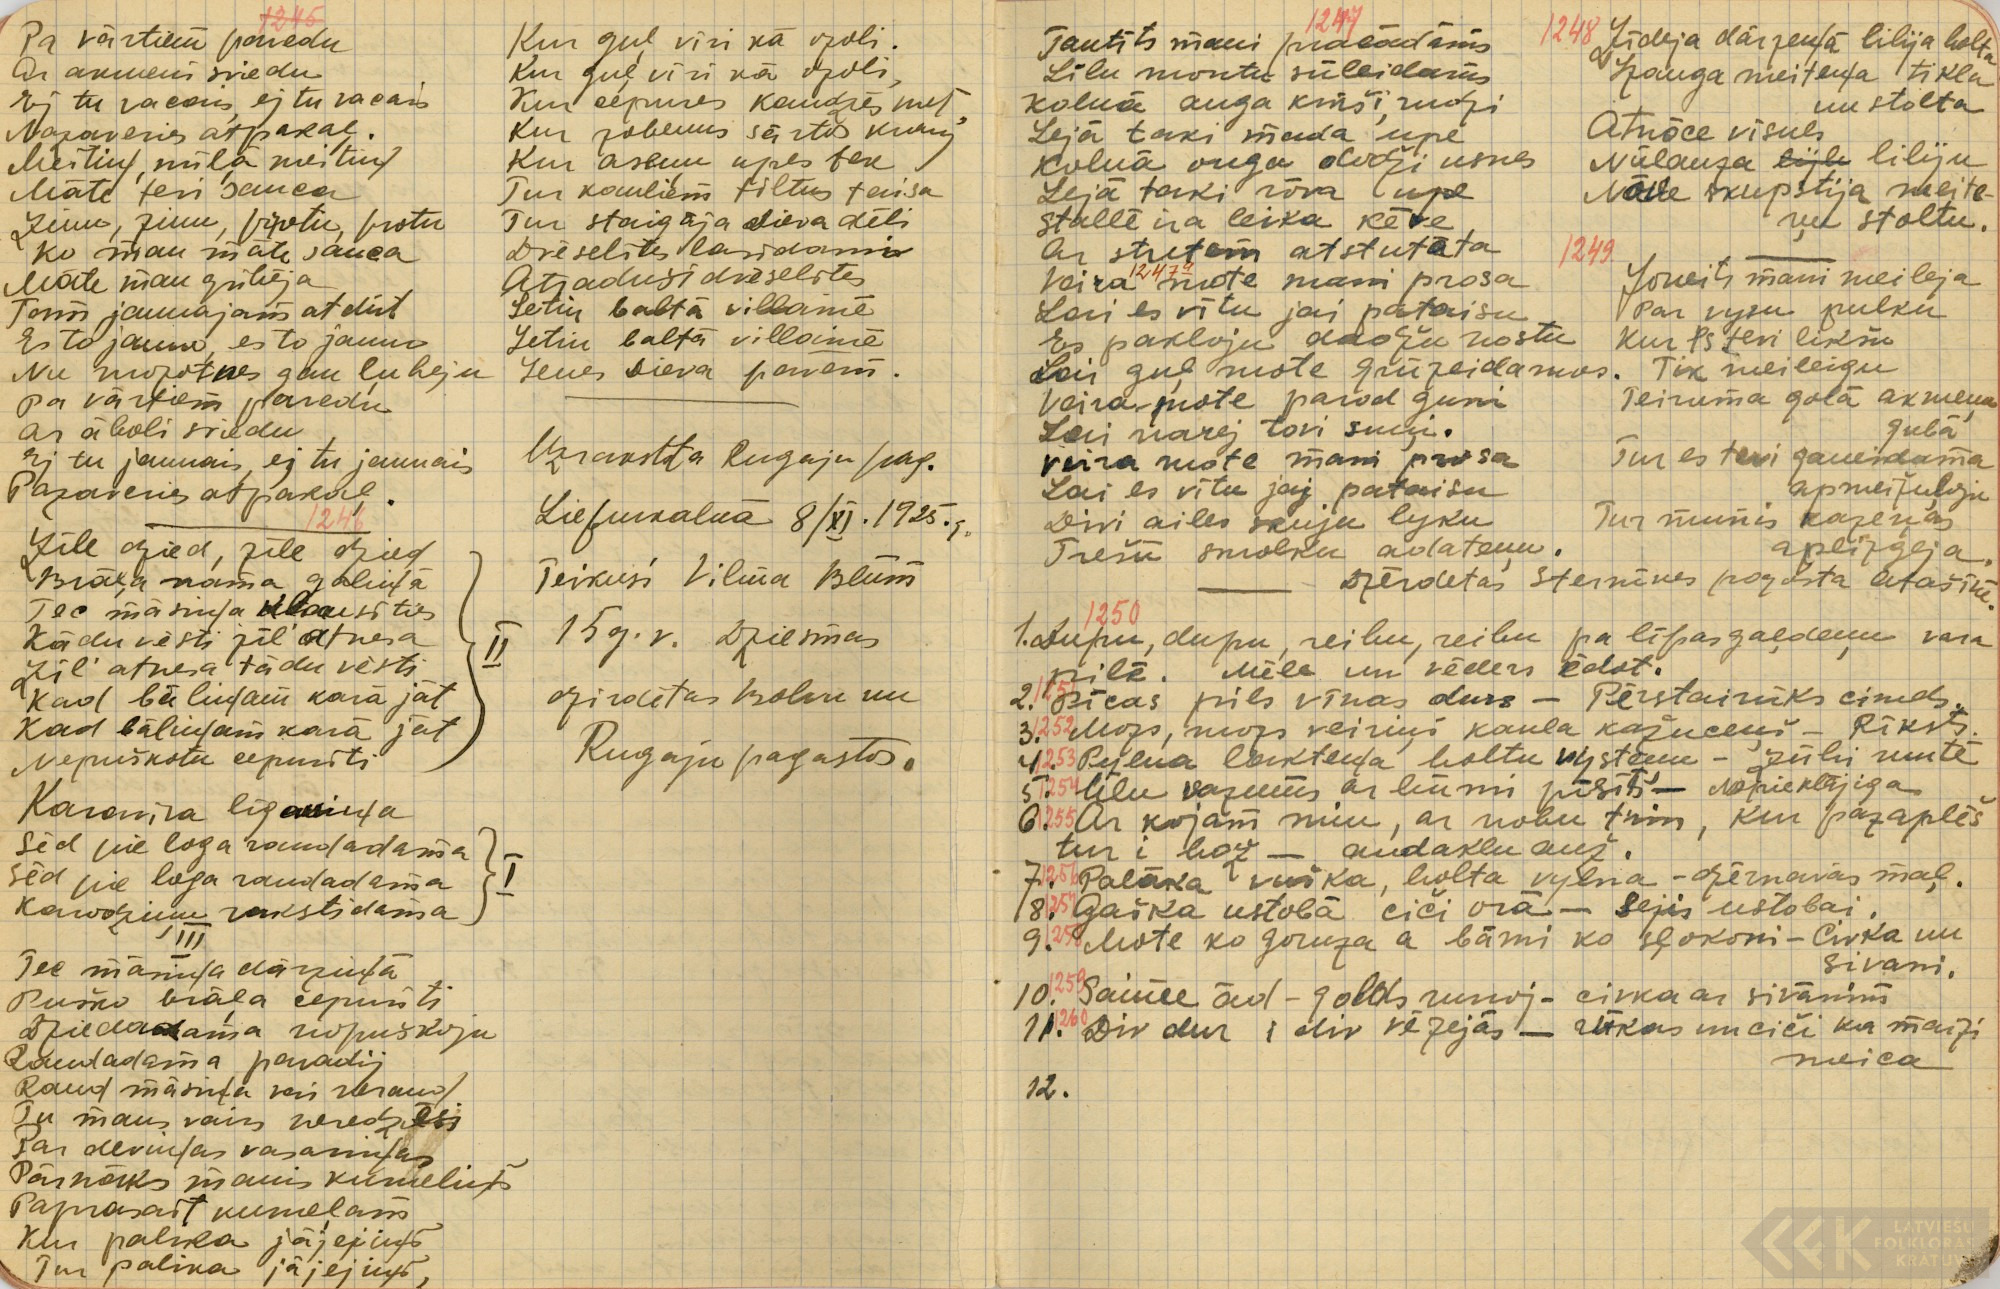 1245
Pa vārtiem paredu
Ar akmeni sviedu
Ej tu vacais, ej tu vacais
Nazaveries atpakaļ.
Meitiņ, mīļā meitiņ
Māte tevi sauca
Zinu, zinu, protu, protu
Ko man māte sauca
Māte man gribēja
Tam jaunajam atdūt
Es to jaunu, es to jaunu
Nu mozotnes gan lubeju
Pa vārtiem paredu
Ar āboli sviedu
Ej tu jaunais, ej tu jaunais
Pazaveries atpakaļ.
1246
Zīle dzied, zīle dzied
Brāļa nama galiņā
Tec māsiņa klausīties
Kādu vēsti zīl' atnesa
Zīl' atnesa tādu vēsti
Kad bāliņam karā jāt
Kad bāliņam karā jāt
Nepuškotu cepurīti
II
Karavīra līgaviņa
Sēd pie loga raudadama
Sēd pie loga raudadama
Karodziņu rakstīdama
I
III
Tec māsiņa dārziņā
Puško brāļa cepurīti
Dziedadama nopuškoju
Raudadama pavadij
Raud māsiņa vai neraud
Tu mans vairs neredzēsi
Par deviņas vasariņas
Pārnāks manis kumeliņš
Paprasait kumeļam
Kur palika jājejiņš
Tur palika jājejiņš,
Kur guļ vīri kā ozoli.
Kur guļ vīri kā ozoli,
Kur cepures kaudzēs met,
Kur zobenus sārtos krauj
Kur asenu upes tek
Tur kauliem tiltus taisa
Tur staigāja dieva dēli
Drēselites lasidami
Atradusi drēselites
Letin baltā villainē
Letin baltā villainē
Lenes Dieva pavēni.
Uzrakstīta Rugaju pag.
Liepukalnā 8/XI. 1925. g.
Teikusi Vilma Blūm
15 g. v. Dziesmas
dzirdētas Bolvu un
Rugaju pagastos.
1247
Tautīts mani pracādāms
Lilu montu sūleidams
Kolnā auga kuši, rudzi
Lejā taki mada upe
Kolnā auga dodži, usnes
Lejā taki rova upe
Stallē ira leika kēve
Ar strutem atstutāta
1247a
Veira mote mani prosa
Lai es vītu jai pataisu
Es pakloju dadžu nostu
Lai guļ mote grūzeidamos.
Veira mote parod guni
Lai narej tovi suņi.
Veira mote mani prosa
Lai es vītu jaj pataisu
Divi ailes skuju lyku
Trešū smolku adateņu.
Dzērdetas Sterniines pogosta Atašinē.
1248
Zīdeja dārzeņā lilija bolta
Izauga meiteņa tikla
un stolta
Atnōce vīsuls
Nūlauza liliju
Nōve skupstīja meite-
ņu stoltu.
1249
Joneits mani meileja
Par vysu pulku
Kur es tevi likšu
Tik meileigu
Teiruma golā akmeņu
gubā
Tur es tevi gaueidama
apmeižuloju
Tur munis kazeņas
aplizgeja.
1250
1. Dupu, dupu, reibu, reibu pa lipas galdeņu vara
pilē. Mēle un vēders ēdot.
2. Pīcas pils vīnas durs – Pērstainīks cimds.
3. 1252 Mozs, mozs veiriņš kaula kažuceņš – Rīksts.
4. 1253 Pylna lakteņa boltu vysteņu – Zūbi mutē
5. 1254 Lilu vazums ar lūmi pīsīts – Napieklājiga
6. 1255 Ar kojam miņ, ar nobu trin, kur pazaplēš
tur i boz – audaklu auž.
7. 1256 Palāka vuška, bolta vylna – dzērnavas maļ.
8. 1257 Gaška ustobā ciči orā – Sejis ustobai.
9. Mote ko gonuza a bārni ko sļokoni – Civka un
sivani.
10. 1259 Saime ād – golds runoj – civka ar sivānim
11. 1260 Div dur i div vēzejās – rūkas un ciči ka maizi
meica
12.
LATVIEŠU
FOLKLORAS
KRĀTUVE